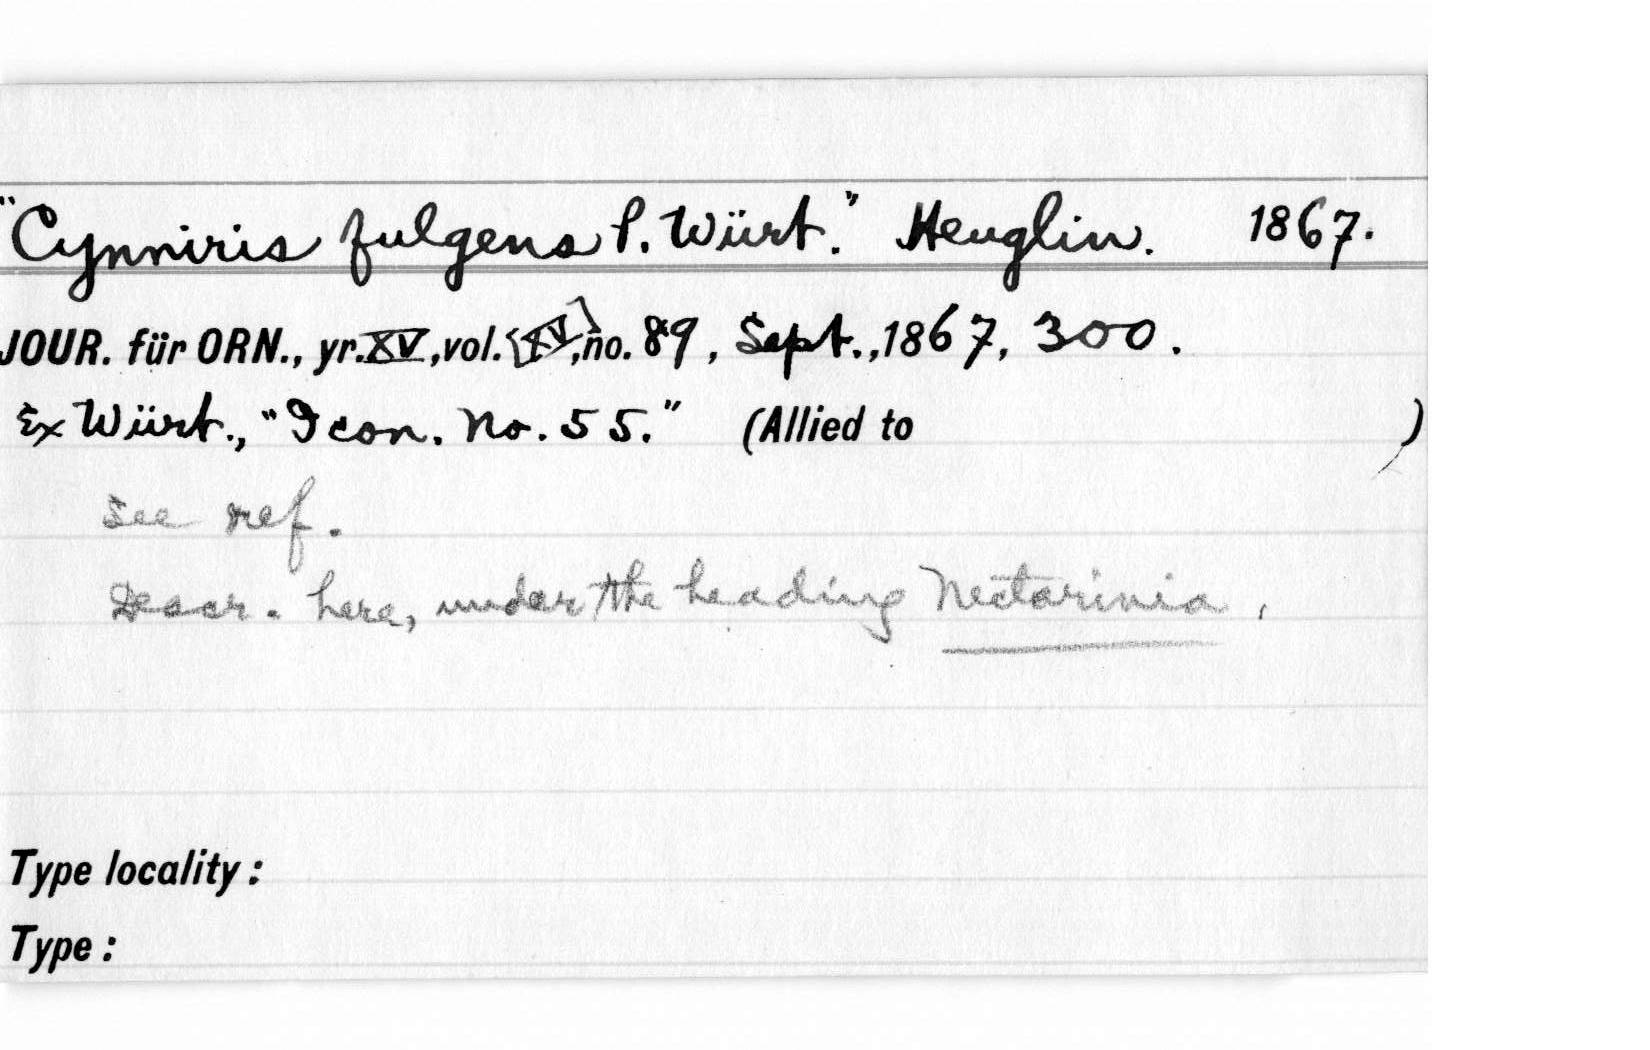 "Cynniris fulgens P. Würt." Heuglin. 1867.
JOUR. für ORN., yr. XV, vol. [XV], no. 89, Sept., 1867, 300.
Ex Würt., "Icon. no. 55." (Allied to )
See ref.
Descr. here, under the heading Nectarinia.
Type locality:
Type: